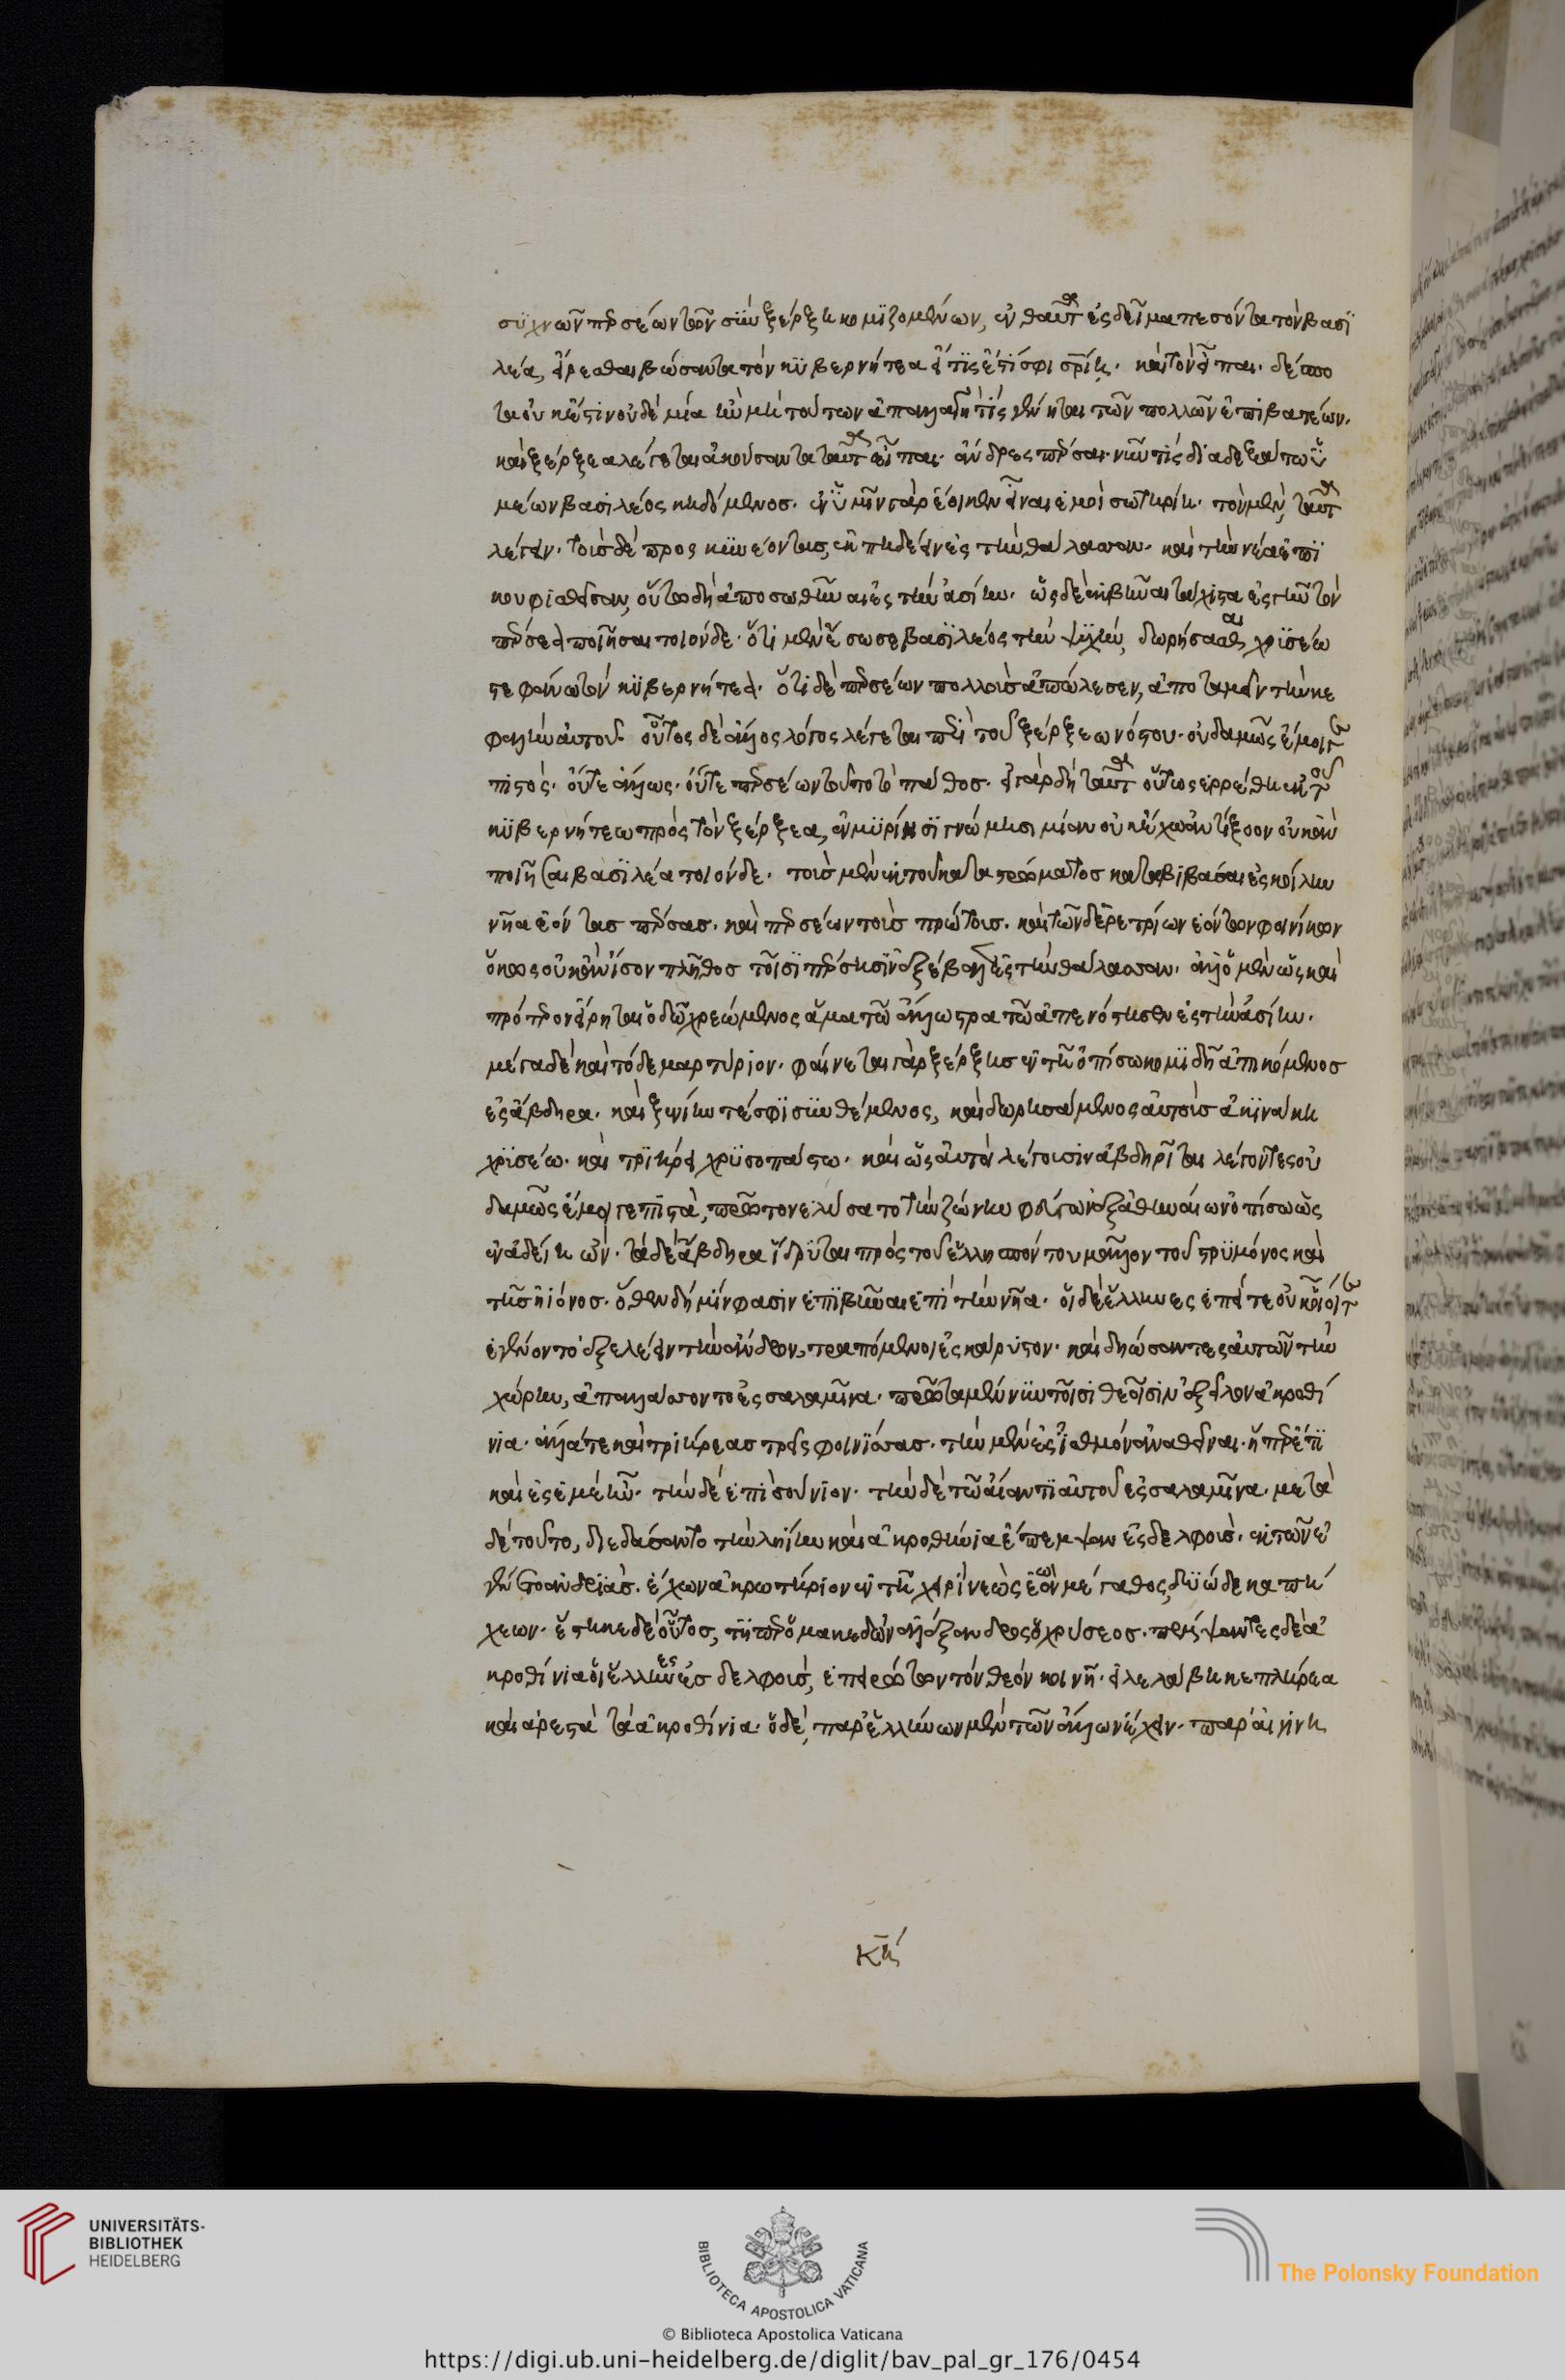 συχνῶν περσέων τῶν σὺν ξέρξη κομιζομένων, ἐνθαῦτα ἐς δεῖμα πεσόντα τὸν βασι
λέα, εἴρεσθαι βώσαντα τὸν κυβερνήτεα εἴ τις ἐστί σφι σωτηρίη. καὶ τὸν εἶπαι. δέσπο
τα οὐκ ἔστιν οὐδεμία ἢν μὴ τούτων ἀπαλλαγή τις γένηται τῶν πολλῶν ἐπιβατέων.
καὶ ξέρξεα λέγεται ἀκούσαντα ταῦτα εἶπαι. ἄνδρες πέρσαι. νῦν τίς διαδεξάτω ὑ
μέων βασιλέος κηδόμενος. ἐν ὑμῖν γὰρ ἔοικεν εἶναι ἐμοὶ σωτηρίη. τὸν μὲν, ταῦτα
λέγειν. τοὺς δὲ προσκυνέοντας, ἐκπηδέειν ἐς τὴν θάλασσαν. καὶ τὴν νέα ἐπι
κουφισθεῖσαν, οὕτω δὴ ἀποσωθῆναι ἐς τὴν ἀσίην. ὡς δὲ ἐκβῆναι τάχιστα ἐς γῆν τὸν
πέρσεα ποιῆσαι τοιόνδε. ὅτι μὲν ἔσωσε βασιλέος τὴν ψυχὴν, δωρήσασθαι χρυσέω
στεφάνω τὸν κυβερνήτεα. ὅτι δὲ περσέων πολλοὺς ἀπώλεσεν, ἀποταμεῖν τὴν κε
φαλὴν αὐτοῦ. οὗτος δὲ ἄλλος λόγος λέγεται περὶ τοῦ ξέρξεω νόστου. οὐδαμῶς ἔμοιγε
πιστὸς. οὔτε ἄλλως. οὔτε περσέων τοῦτο τὸ πάθος. εἰ γὰρ δὴ ταῦτα οὕτως εἰρρέθη ἐκ τοῦ
κυβερνήτεω πρὸς τὸν ξέρξεα, ἐν μυρίησι γνώμησι μίαν οὐκ ἔχω ἀντίξοον οὐκ ἂν
ποιῆσαι βασιλέα τοιόνδε. τοὺς μὲν ἐκ τοῦ καταστρώματος καταβιβάσαι ἐς κοίλην
νῆα ἐόντας πέρσας. καὶ περσέων τοὺς πρώτους. καὶ τῶν δὲ ἐρετρίων ἐόντων φοινίκων
ὅκως οὐκ ἂν ἴσον πλῆθος τοῖσι πέρσησιν ἐξέβαλε ἐς τὴν θάλασσαν. ἀλλ' ὁ μὲν ὡς καὶ
πρότερον εἴρηται ὁδῶ χρεώμενος ἅμα τῶ ἄλλω στρατῶ ἀπενόστησεν ἐς τὴν ἀσίην.
μέγα δὲ καὶ τόδε μαρτύριον. φαίνεται γὰρ ξέρξης ἐν τῆ ὀπίσω κομιδῆ ἀπικόμενος
ἐς ἄβδηρα. καὶ ξεινίην τέ σφι συνθέμενος, καὶ δωρησάμενος αὐτοὺς ἀκινάκη
χρυσέω. καὶ τριήρει χρυσοπάστω. καὶ ὡς αὐτοὶ λέγουσιν ἀβδηρῖται λέγοντες οὐ
δαμῶς ἔμοιγε πιστὰ, πρῶτον ἐλύσατο τὴν ζώνην φεύγων ἐξ ἀθηνάων ὀπίσω ὡς
ἐν ἀδείη ὤν. τὰ δὲ ἄβδηρα ἵδρυται πρὸς τοῦ ἑλλησπόντου μᾶλλον τοῦ στρυμόνος καὶ
τῆς ἠιόνος. ὅθεν δή μίν φασιν ἐπιβῆναι ἐπὶ τὴν νῆα. οἱ δὲ ἕλληνες ἐπεί τε οὐκ οἷοί τε
ἐγένοντο ἐξελεῖν τὴν ἄνδρον, τραπόμενοι ἐς κάρυστον. καὶ δηώσαντες αὐτῶν τὴν
χώρην, ἀπαλλάσσοντο ἐς σαλαμῖνα. πρῶτα μέν νυν τοῖσι θεοῖσιν ἐξεῖλον ἀκροθί
νια. ἄλλα τε καὶ τριήρεας τρεῖς φοινίσσας. τὴν μὲν ἐς ἰσθμὸν ἀναθεῖναι. ἥπερ ἔτι
καὶ ἐς ἐμὲ ἦν. τὴν δὲ ἐπὶ σούνιον. τὴν δὲ τῶ αἴαντι αὐτοῦ ἐς σαλαμῖνα. μετὰ
δὲ τοῦτο, διεδάσαντο τὴν ληίην καὶ ἀκροθήνια ἔπεμψαν ἐς δελφοὺς. ἐκ τῶν ἐ
γένετο ἀνδριὰς. ἔχων ἀκρωτήριον ἐν τῆ χειρὶ νεὼς ἐὼν μέγαθος, δυώδεκα πή
χεων. ἕστηκε δὲ οὗτος, τῆπερ ὁ μακεδὼν ἀλέξανδρος ὁ χρύσεος. πέμψαντες δὲ ἀ
κροθίνια οἱ ἕλληνες ἐς δελφοὺς, ἐπειρώτων τὸν θεὸν κοινῆ. εἰ λελάβηκε πλήρεα
καὶ ἀρεστὰ τὰ ἀκροθίνια. ὁ δὲ, παρ' ἑλλήνων μὲν τῶν ἄλλων ἔχειν. παρὰ αἰγινη
κη
UNIVERSITÄTS-
BIBLIOTHEK
HEIDELBERG
BIBLIOTECA APOSTOLICA VATICANA
The Polonsky Foundation
© Biblioteca Apostolica Vaticana
https://digi.ub.uni-heidelberg.de/diglit/bav_pal_gr_176/0454